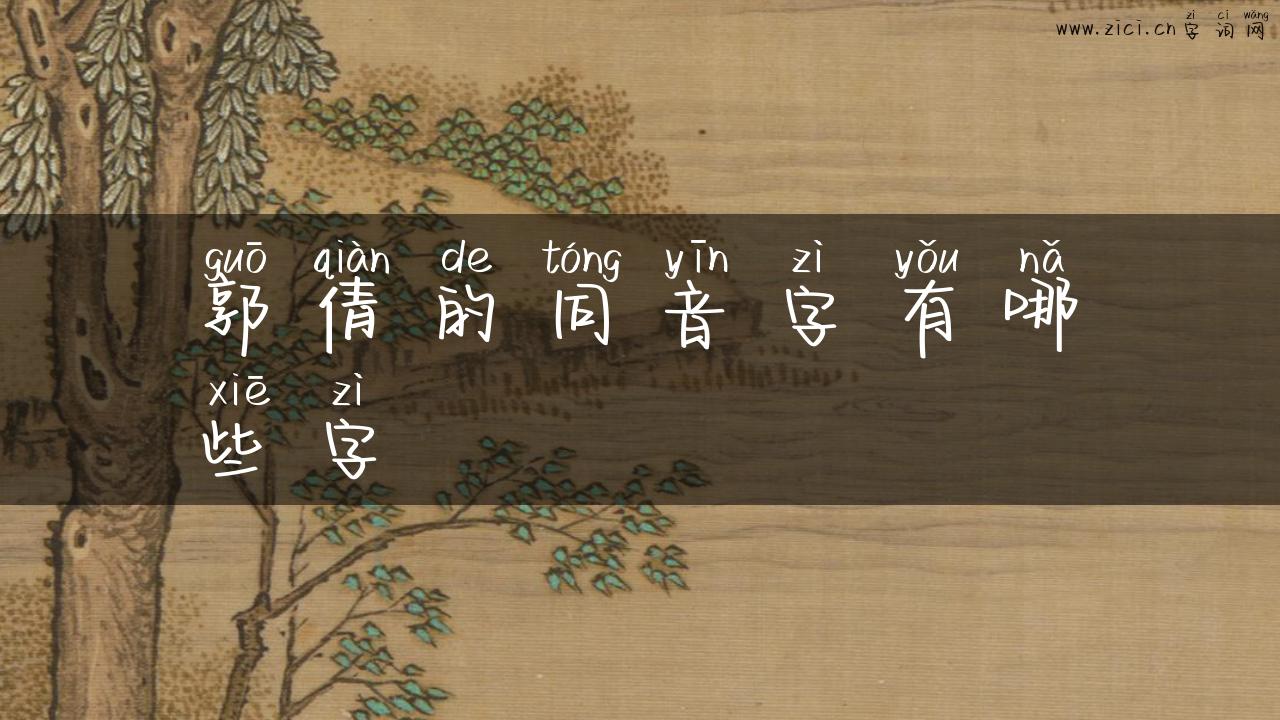 zì cí wǎng
www.zici.cn 字词网
guō qiàn de tóng yīn zì yǒu nǎ
郭倩的同音字有哪
xiē zì
些字